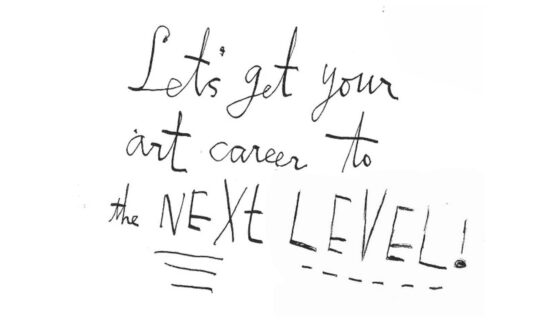 Let's get your
art career to
the NEXt LEVEL!